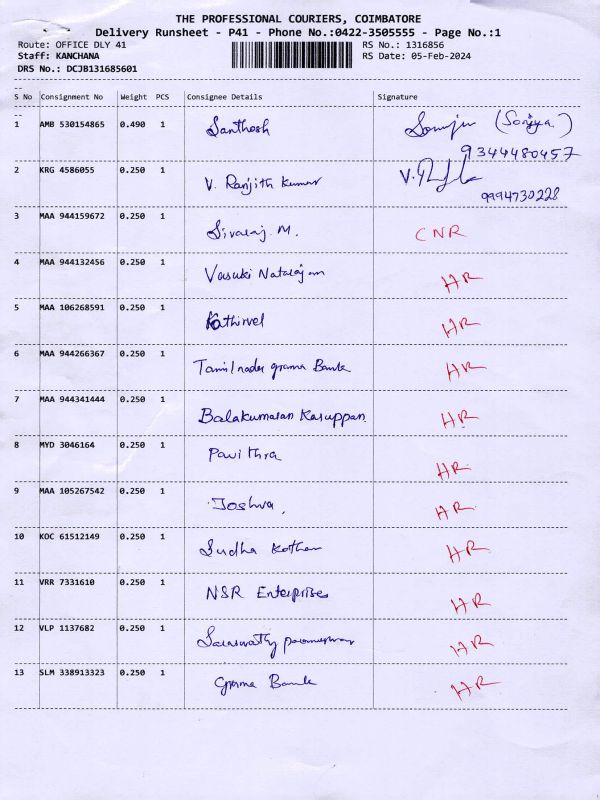 THE PROFESSIONAL COURIERS, COIMBATORE
Delivery Runsheet - P41 - Phone No.:0422-3505555 - Page No.:1
Route: OFFICE DLY 41 RS No.: 1316856
Staff: KANCHANA RS Date: 05-Feb-2024
DRS No.: DCJB131685601
--
S No Consignment No Weight PCS Consignee Details Signature
--
1 AMB 530154865 0.490 1 Santhosh (Sonjya.)
9344480457
2 KRG 4586055 0.250 1 V. Ranjith Kumar V.
9994730228
3 MAA 944159672 0.250 1 Sivaraj. M. CNR
4 MAA 944132456 0.250 1 Vasuki Natarajan HR
5 MAA 106268591 0.250 1 Kathirvel HR
6 MAA 944266367 0.250 1 Tamilnadu grama Bank HR
7 MAA 944341444 0.250 1 Balakumaran Karuppan HR
8 MYD 3046164 0.250 1 Pavithra HR
9 MAA 105267542 0.250 1 Joshva. HR
10 KOC 61512149 0.250 1 Sudha Kothan HR
11 VRR 7331610 0.250 1 NSR Enterprises HR
12 VLP 1137682 0.250 1 Saraswathy parameshwar HR
13 SLM 338913323 0.250 1 Grama Bank HR